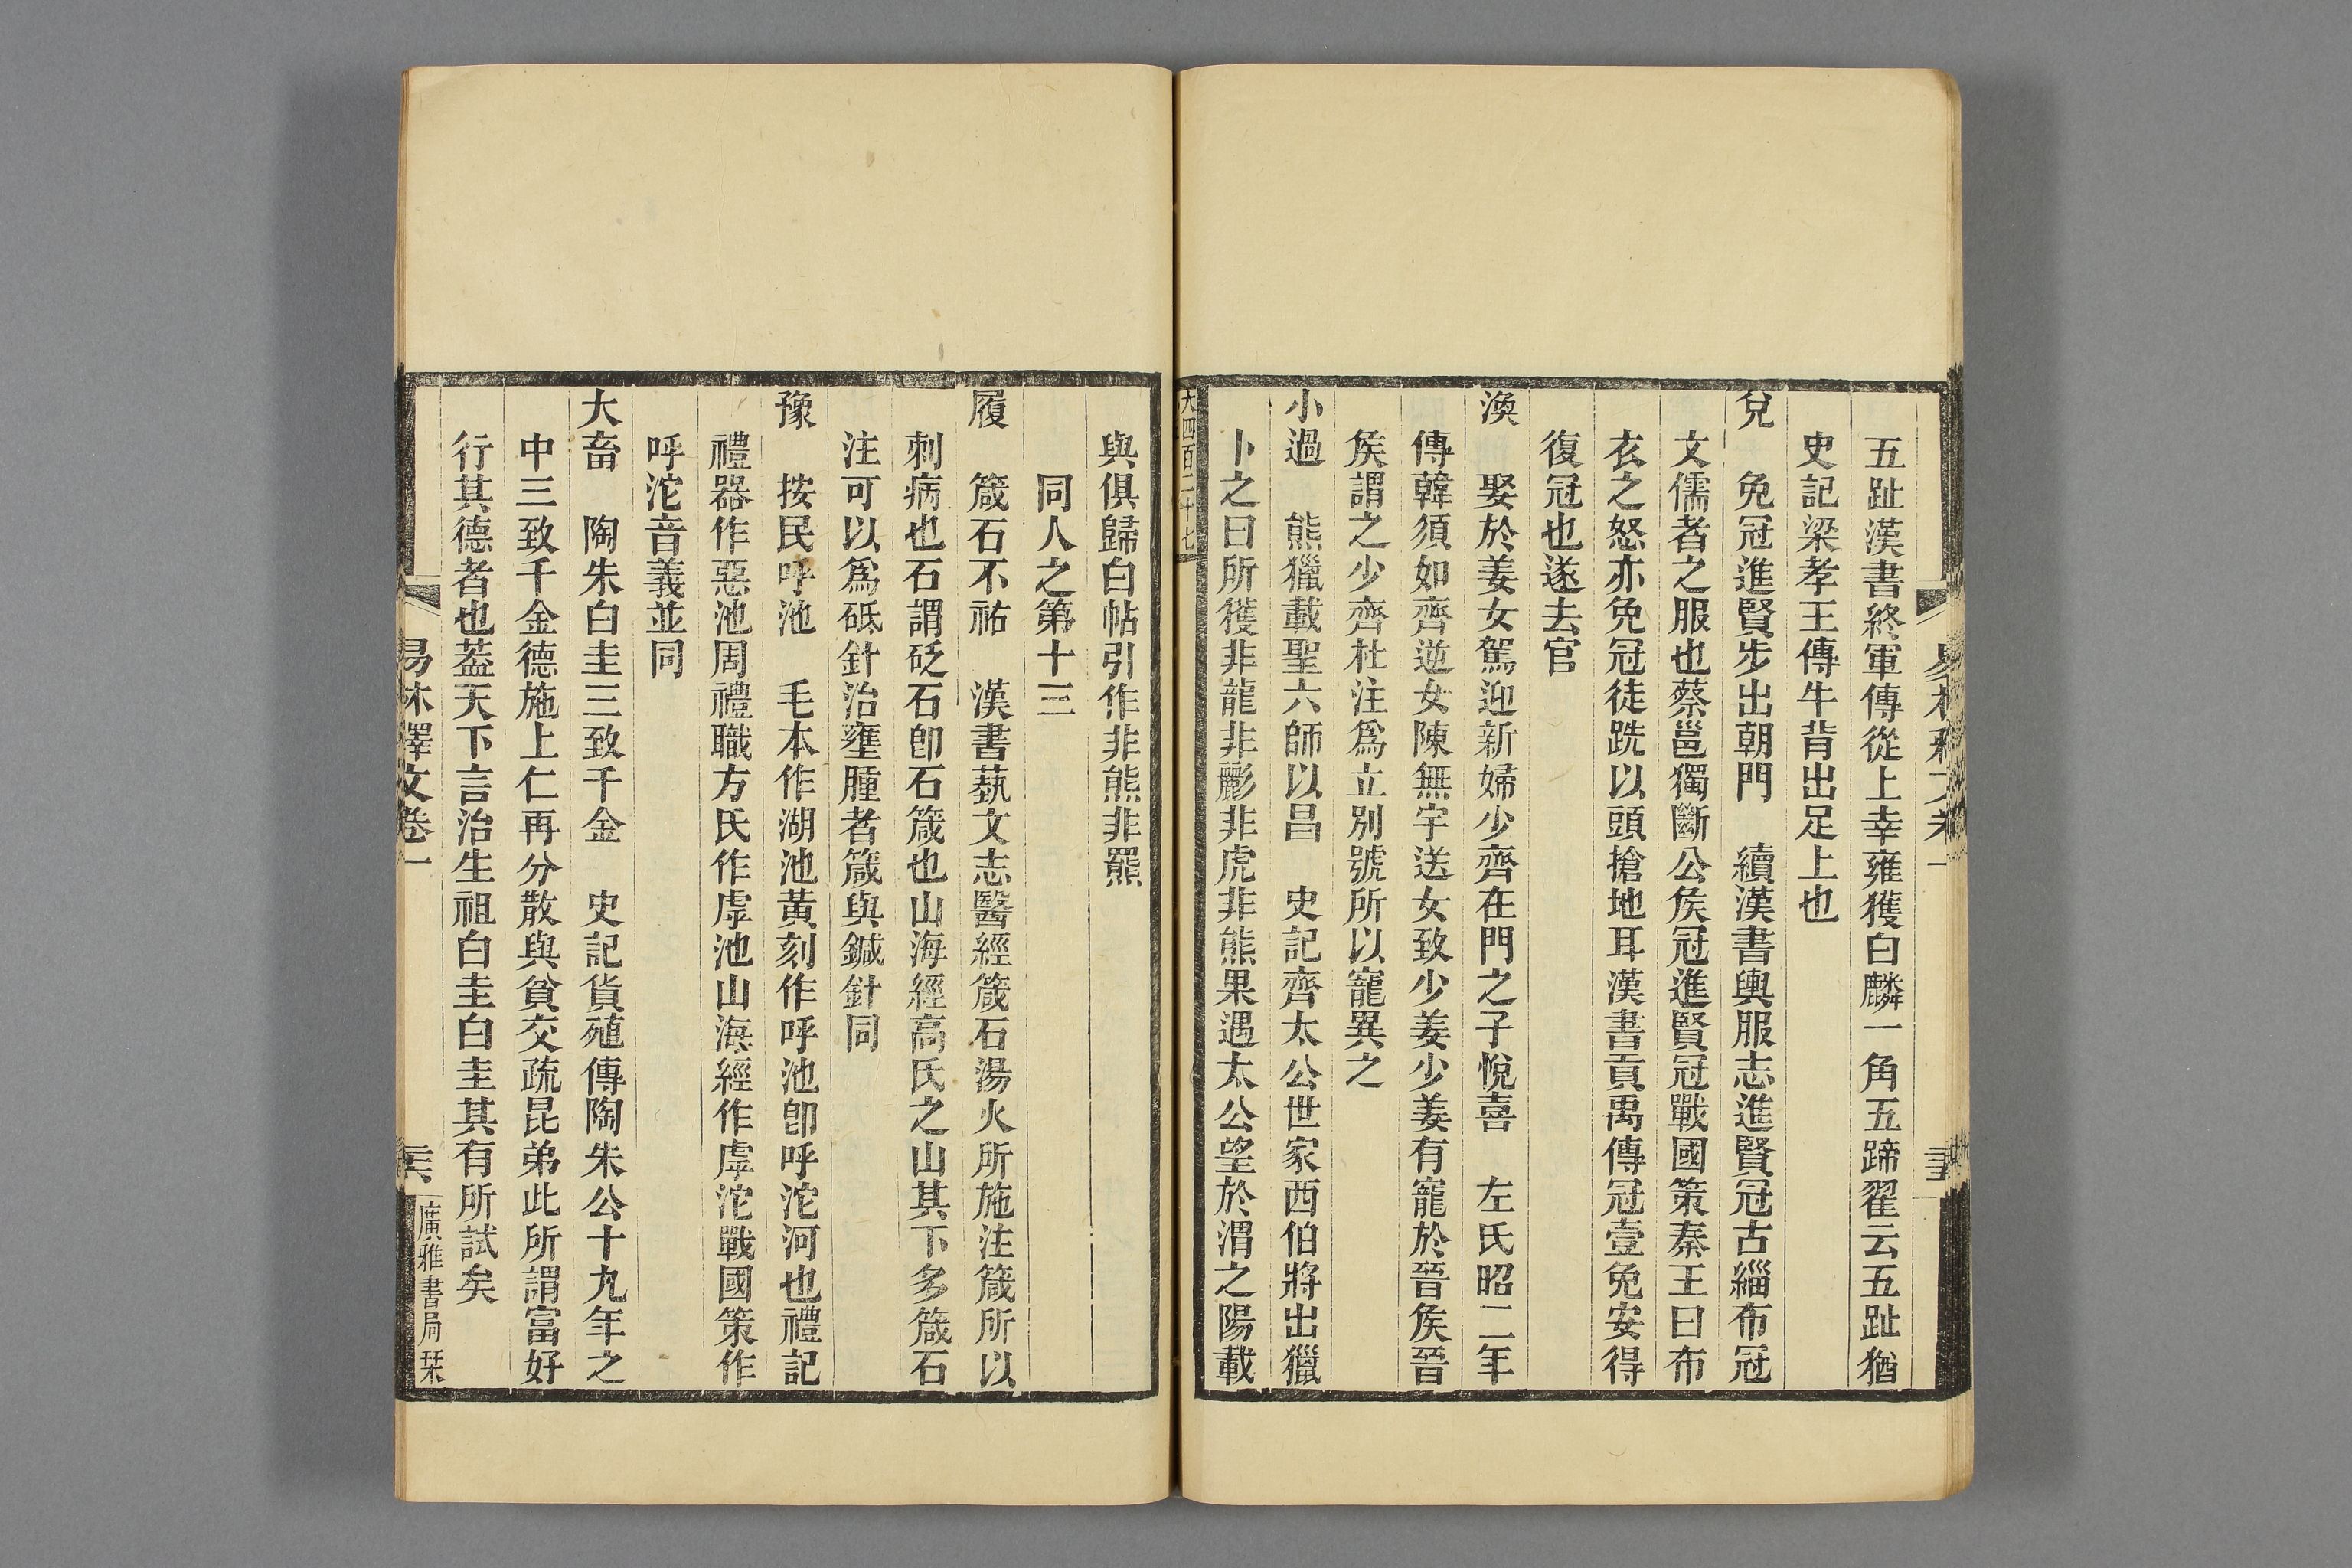 五趾漢書終軍傳從上幸雍獲白麟一角五蹄翟云五趾猶
史記梁孝王傳牛背出足上也
兌　免冠進賢步出朝門　續漢書輿服志進賢冠古緇布冠
文儒者之服也蔡邕獨斷公侯冠進賢冠戰國策秦王曰布
衣之怒亦免冠徒跣以頭搶地耳漢書貢禹傳冠壹免安得
復冠也遂去官
渙　娶於姜女駕迎新婦少齊在門之子悅喜　左氏昭二年
傳韓須如齊逆女陳無宇送女致少姜少姜有寵於晉侯晉
侯謂之少齊杜注爲立別號所以寵異之
小過　熊獵載聖六師以昌　史記齊太公世家西伯將出獵
卜之曰所獲非龍非彲非虎非熊果遇太公望於渭之陽載
大四百二十七
與俱歸白帖引作非熊非羆
同人之第十三
履　箴石不祐　漢書蓺文志醫經箴石湯火所施注箴所以
刺病也石謂砭石卽石箴也山海經高氏之山其下多箴石
注可以爲砥針治壅腫者箴與鍼針同
豫　按民呼池　毛本作湖池黃刻作呼池卽呼沱河也禮記
禮器作惡池周禮職方氏作虖池山海經作虖沱戰國策作
呼沱音義並同
大畜　陶朱白圭三致千金　史記貨殖傳陶朱公十九年之
中三致千金德施上仁再分散與貧交疏昆弟此所謂富好
行其德者也葢天下言治生祖白圭白圭其有所試矣
易林釋文卷一
廣雅書局栞